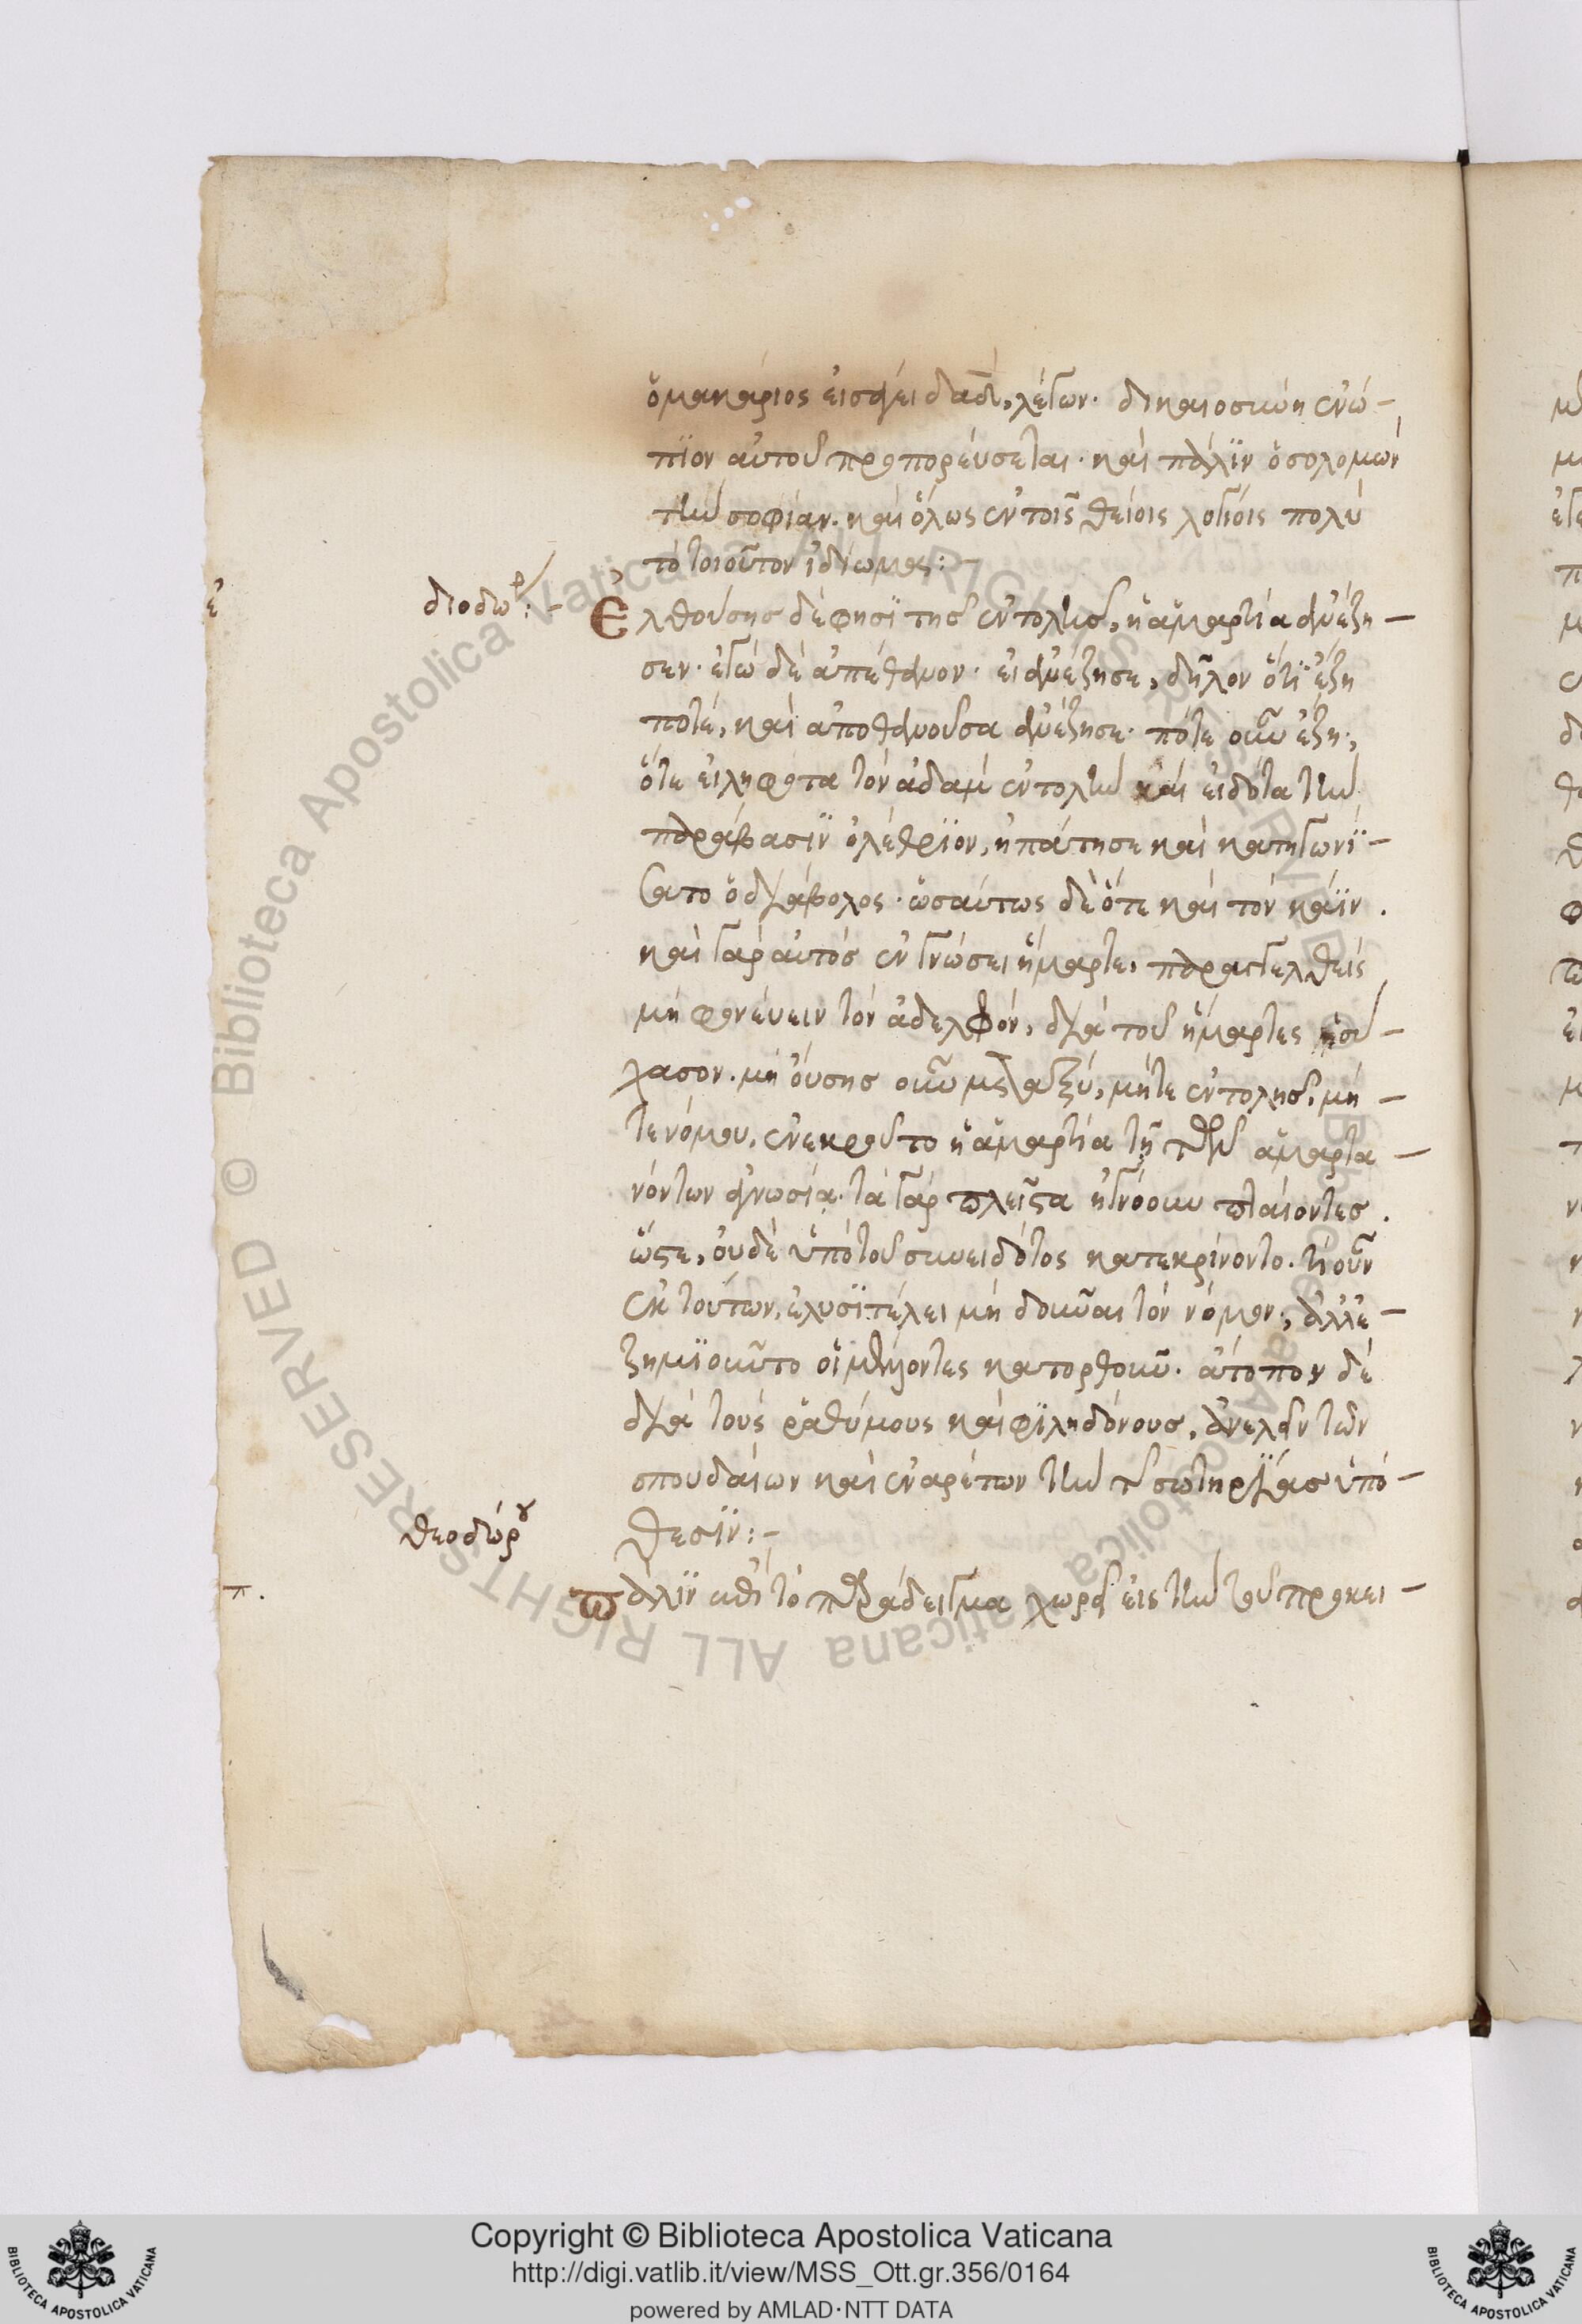 ὁ μακάριος εἰσάγει δαδ, λέγων. δικαιοσύνη ἐνώ-
πϊον αὐτοῦ προπορεύσεται. καὶ πάλϊν ὁ σολομών
τὴν σοφίαν. καὶ ὅλως ἐν τοῖς θείοις λογίοις πολὺ
τὸ τοιοῦτον ἰδίωμα:-
διοδώρ:-
Ἐλθούσης δέ φησϊ τῆς ἐντολῆς, ἡ ἁμαρτία ἀνέζη-
σεν. ἐγὼ δὲ ἀπέθανον. εἰ ἀνέζησε, δῆλον ὅτϊ ἔζη
ποτέ, καὶ ἀποθανοῦσα ἀνέζησε. πότε οὖν ἔζη;
ὅτε εἰληφότα τὸν ἀδὰμ ἐντολὴν καὶ εἰδότα τὴν
παράβασϊν ὀλέθρϊον, ἠπάτησε καὶ κατηγωνί-
σατο ὁ διάβολος. ὡσαύτως δὲ ὅτε καὶ τὸν κάϊν.
καὶ γὰρ αὐτὸς ἐν γνώσει ἥμαρτε, παραγγελθεὶς
μὴ φονεύειν τὸν ἀδελφόν, διὰ τοῦ ἥμαρτες ἡσύ-
χασον. μὴ οὔσης οὖν μεταξύ, μήτε ἐντολῆς, μή-
τε νόμου, ἐνεκροῦτο ἡ ἁμαρτία τῇ τῶν ἁμαρτα-
νόντων ἀγνωσίᾳ. τὰ γὰρ πλεῖστα ἠγνόουν πταίοντες.
ὥστε, οὐδὲ ὑπὸ τοῦ συνειδότος κατεκρίνοντο. τί οὖν
ἐκ τούτων, ἐλυσϊτέλει μὴ δοῦναι τὸν νόμον; ἀλλ' ἐ-
ζημϊοῦντο οἱ μέλλοντες κατορθοῦν. ἄτοπον δὲ
διὰ τοὺς ῥαθύμους καὶ φϊληδόνους, ἀνελεῖν τῶν
σπουδαίων καὶ ἐναρέτων τὴν τῆς σωτηρίας ὑπό-
θεσϊν:-
θεοδώρου
πάλϊν καθὸ τὸ παράδειγμα χωρεῖ εἰς τὴν τοῦ προκει-